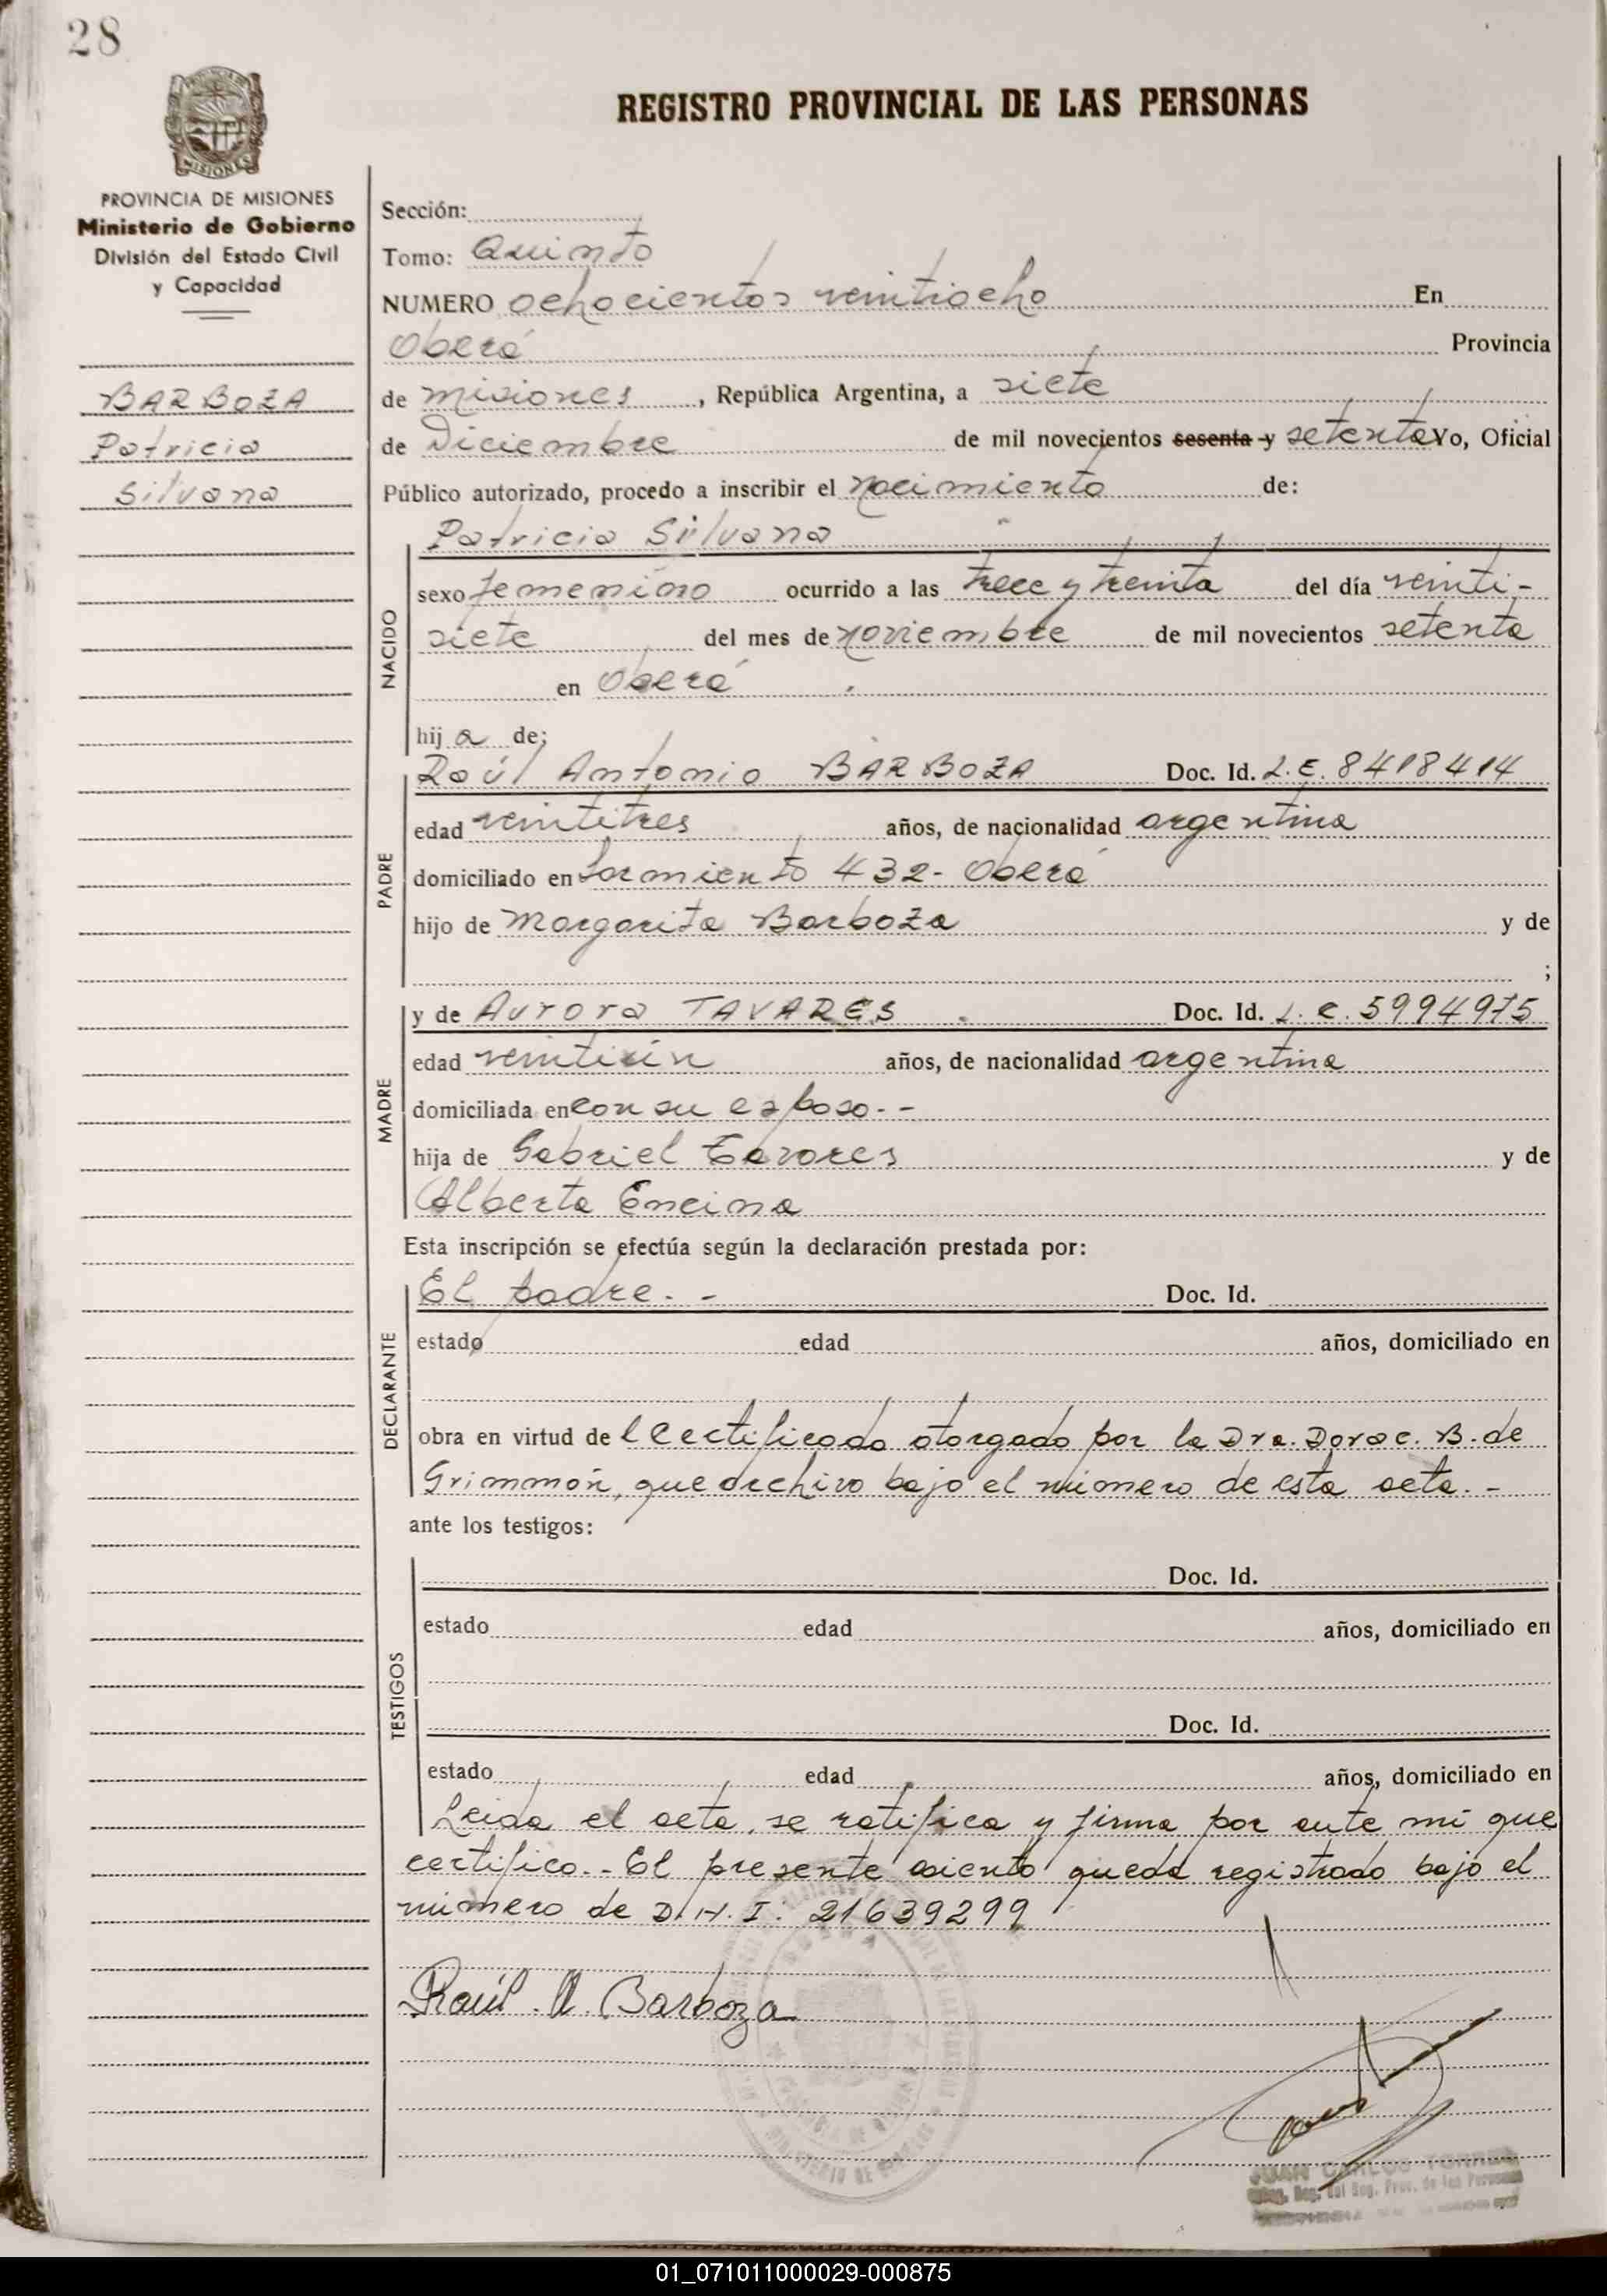 28
MISIONES
REGISTRO PROVINCIAL DE LAS PERSONAS
PROVINCIA DE MISIONES
Ministerio de Gobierno
División del Estado Civil
y Capacidad
BARBOZA
Patricia
Silvana
Sección:
Tomo: Quinto
NUMERO ochocientos veintiocho En
Oberá Provincia
de misiones, República Argentina, a siete
de Diciembre de mil novecientos sesenta y setenta Yo, Oficial
Público autorizado, procedo a inscribir el nacimiento de:
NACIDO
Patricia Silvana
sexo femenino ocurrido a las trece y treinta del día veinti-
siete del mes de noviembre de mil novecientos setenta
en Oberá
hija de;
PADRE
Raúl Antonio BARBOZA Doc. Id. L.E. 8418414
edad veintitres años, de nacionalidad argentina
domiciliado en Sarmiento 432- Oberá
hijo de Margarita Barboza y de
;
MADRE
y de Aurora TAVARES Doc. Id. L.C. 5994975
edad veintiún años, de nacionalidad argentina
domiciliada en con su esposo.-
hija de Gabriel Tavares y de
Alberta Encina
Esta inscripción se efectúa según la declaración prestada por:
DECLARANTE
El padre.- Doc. Id.
estado edad años, domiciliado en
obra en virtud del Certificado otorgado por la Dra. Dora C. B. de
Grimmon, que archivo bajo el número de esta acta.-
ante los testigos:
TESTIGOS
Doc. Id.
estado edad años, domiciliado en
Doc. Id.
estado edad años, domiciliado en
Leída el acta, se ratifica y firma por ante mí que
certifico.- El presente asiento queda registrado bajo el
número de D.N.I: 21639299
Raúl A. Barboza
JUAN CARLOS TORRES
Reg. Prov. de las Personas
01_071011000029-000875